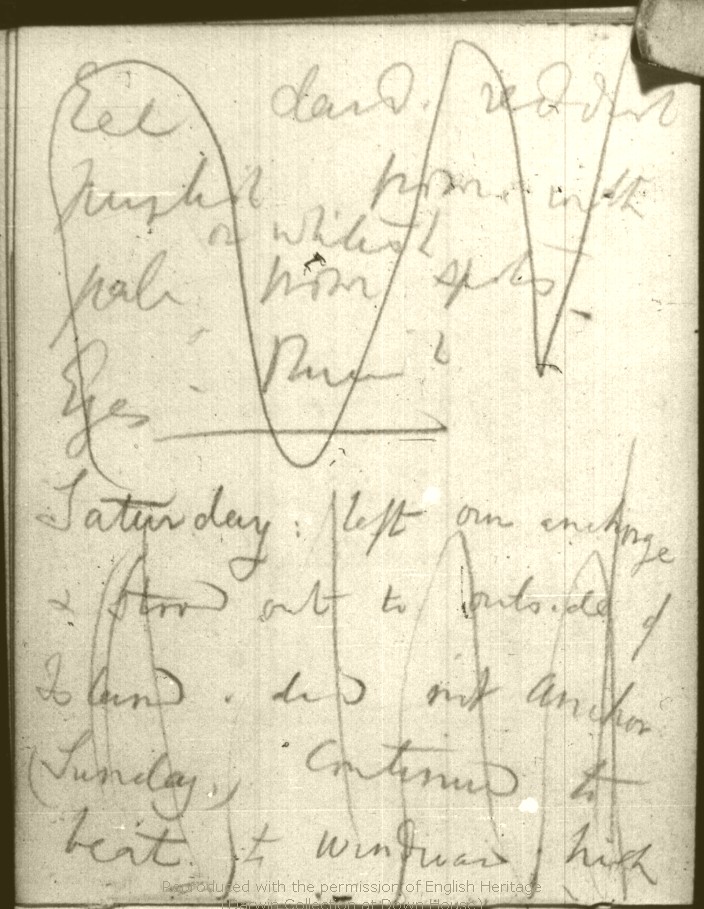 Eel dard. reddish
purplish brown with
or whitish
pale brown spots
Eyes - Blue
Saturday: left our anchorage
& stood out to outside of
Island. did not anchor
(Sunday,) Continued to
beat to windward; high
Reproduced with the permission of English Heritage
(Darwin Collection at Down House)